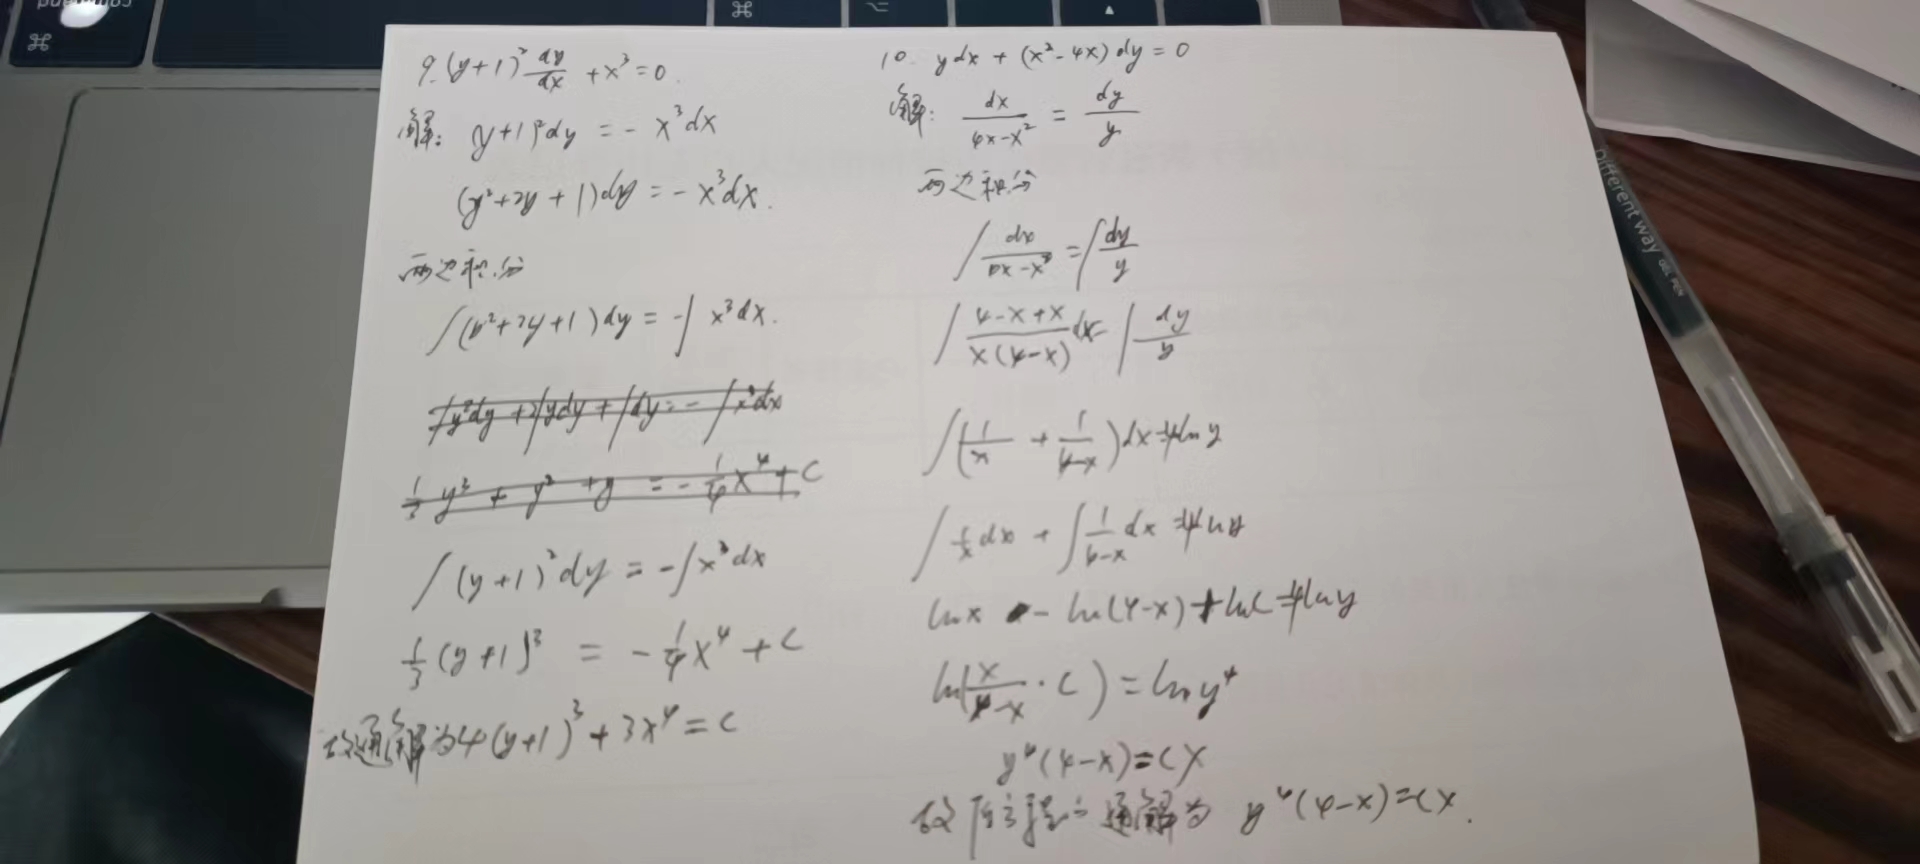 command
⌘
⌘
⌥
▲
9. (y+1)² dy/dx + x³ = 0.
解: (y+1)²dy = - x³dx
(y²+2y+1)dy = - x³dx.
两边积分
∫(y²+2y+1)dy = -∫x³dx.
∫y²dy + 2∫ydy + ∫dy = - ∫x³dx
1/3 y³ + y² + y = - 1/4 x⁴ + C
∫(y+1)²dy = -∫x³dx
1/3 (y+1)³ = - 1/4 x⁴ + C
故通解为4(y+1)³ + 3x⁴ = C
10. ydx + (x²-4x)dy = 0
解: dx/(4x-x²) = dy/y
两边积分
∫ dx/(4x-x²) = ∫ dy/y
∫ (4-x+x)/(x(4-x)) dx = ∫ dy/y
∫(1/x + 1/(4-x))dx = 4lny
∫ 1/x dx + ∫ 1/(4-x) dx = 4lny
lnx - ln(4-x) + lnC = 4lny
ln(x/(4-x) · C) = lny⁴
y⁴(4-x) = Cx
故原方程的通解为 y⁴(4-x) = Cx.
Different way GEL PEN